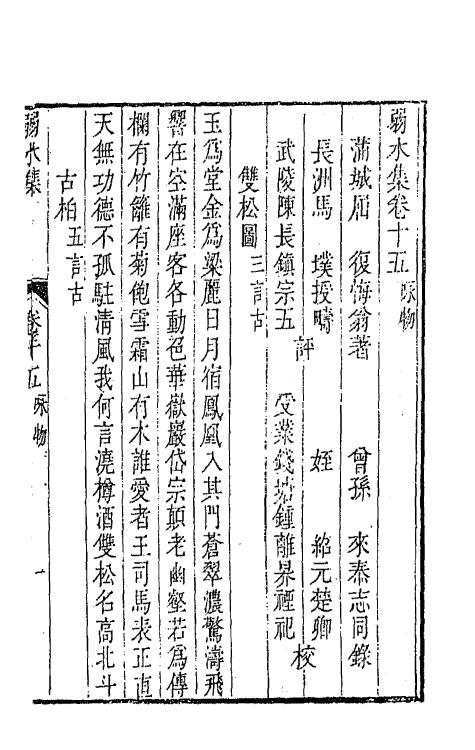 弱水集卷十五 咏物
蒲城屈 復悔翁著 曾孫 來泰志同錄
長洲馬 墣授疇 評 姪 紹元楚卿 校
武陵陳長鎮宗五 受業錢塘鍾離㫤禋祀
雙松圖 三言古
玉為堂金為梁麗日月宿鳳凰入其門蒼翠濃驚濤飛
響在空滿座客各動色華嶽巖岱宗顛老幽壑若為傳
欄有竹籬有菊飽雪霜山有木誰愛者王司馬表正直
天無功德不孤駐清風我何言澆樽酒雙松名高北斗
古柏 五言古
弱水集 卷十五 咏物 一